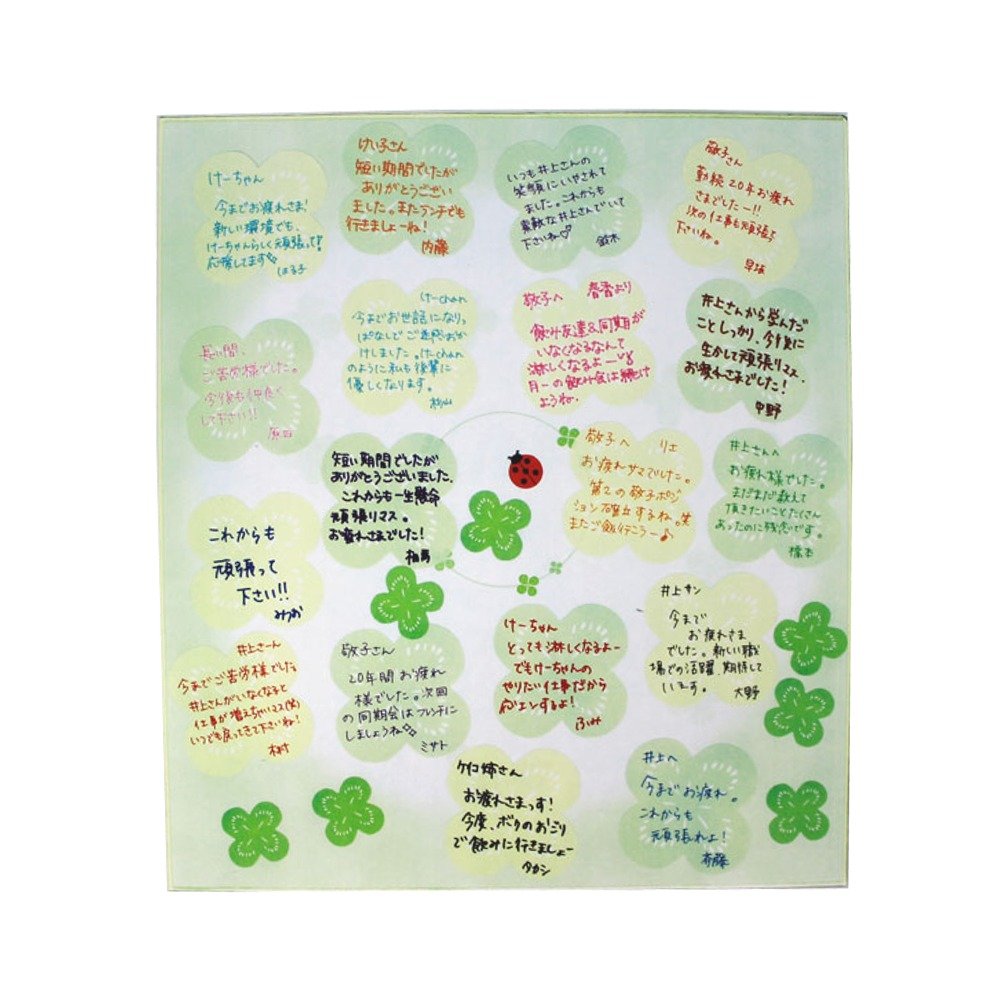 けーちゃん
今までお疲れさま!
新しい環境でも、
けーちゃんらしく頑張って!!
応援してます
はる子
けい子さん
短い期間でしたが
ありがとうござい
ました。またランチでも
行きましょーね!
内藤
いつも井上さんの
笑顔にいやされて
ました。これからも
素敵な井上さんでいて
下さいね♡
鈴木
敬子さん
勤続20年お疲れ
さまでしたー!!
次の仕事も頑張って
下さいね。
早坂
長い間、
ご苦労様でした。
今後も仲良く
して下さい!!
原田
けーchan
今までお世話になりっ
ぱなしでご迷惑おか
けしました。けーchan
のように私も後輩に
優しくなります。
敬子へ 春香より
飲み友達&同期が
いなくなるなんて
淋しくなるよー
月一の飲み会は続け
ようね。
井上さんから学んだ
ことしっかり、今後に
生かして頑張りマス。
お疲れさまでした!
中野
短い期間でしたが
ありがとうございました。
これからも一生懸命
頑張りマス。
お疲れさまでした!
相馬
敬子へ リエ
お疲れサマでした。
第2の敬子ポジ
ション確立するね。笑
またご飯行こうー♪
井上さんへ
お疲れ様でした。
まだまだ教えて
頂きたいことたくさん
あったのに残念です。
橋本
これからも
頑張って
下さい!!
みつお
井上さーん
今までご苦労様でした
井上さんがいなくなると
仕事が増えちゃいマス(笑)
いつでも戻ってきて下さいね!
木村
敬子さん
20年間お疲れ
様でした。次回
の同期会はフレンチに
しましょうね
ミサト
けーちゃん
とっても淋しくなるよー
でもけーちゃんの
やりたい仕事だから
応エンするよ!
ふみ
井上サン
今まで
お疲れさま
でした。新しい職
場での活躍、期待して
います。
大野
ケイコ姉さん
お疲れさまっす!
今度、ボクのおごり
で飲みに行きましょー
タカシ
井上へ
今までお疲れ。
これからも
頑張れよ!
斉藤